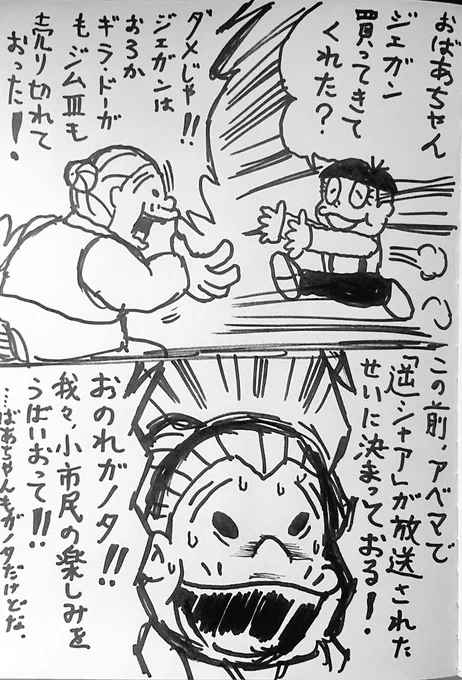 おばあちゃん
ジェガン
買ってきて
くれた？
ダメじゃ!!
ジェガンは
おろか
ギラ・ドーガ
もジムⅢも
売り切れて
おった！
この前、アベマで
「逆シャア」が放送された
せいに決まっておる！
おのれガノタ!!
我々、小市民の楽しみを
うばいおって!!
…ばあちゃんもガノタだけどな。